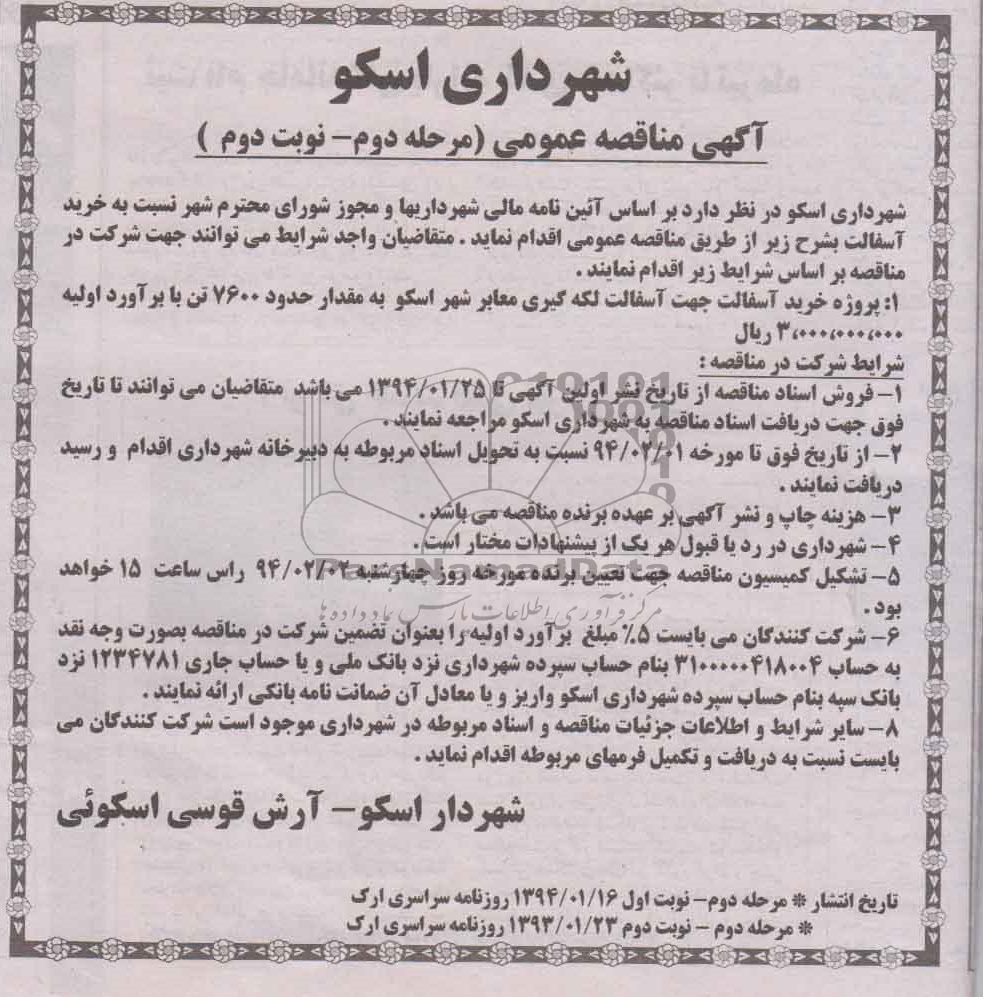 شهرداری اسکو
آگهی مناقصه عمومی (مرحله دوم- نوبت دوم )
شهرداری اسکو در نظر دارد بر اساس آئین نامه مالی شهرداریها و مجوز شورای محترم شهر نسبت به خرید
آسفالت بشرح زیر از طریق مناقصه عمومی اقدام نماید . متقاضیان واجد شرایط می توانند جهت شرکت در
مناقصه بر اساس شرایط زیر اقدام نمایند .
۱: پروژه خرید آسفالت جهت آسفالت لکه گیری معابر شهر اسکو به مقدار حدود ۷۶۰۰ تن با برآورد اولیه
۳،۰۰۰،۰۰۰،۰۰۰ ریال
شرایط شرکت در مناقصه :
۱- فروش اسناد مناقصه از تاریخ نشر اولین آگهی تا ۱۳۹۴/۰۱/۲۵ می باشد متقاضیان می توانند تا تاریخ
فوق جهت دریافت اسناد مناقصه به شهرداری اسکو مراجعه نمایند .
۲- از تاریخ فوق تا مورخه ۹۴/۰۲/۰۱ نسبت به تحویل اسناد مربوطه به دبیرخانه شهرداری اقدام و رسید
دریافت نمایند .
۳- هزینه چاپ و نشر آگهی بر عهده برنده مناقصه می باشد .
۴- شهرداری در رد یا قبول هر یک از پیشنهادات مختار است .
۵- تشکیل کمیسیون مناقصه جهت تعیین برنده مورخه روز چهارشنبه ۹۴/۰۲/۰۲ راس ساعت ۱۵ خواهد
بود .
مرکز فرآوری اطلاعات پارس نماد داده ها
۶- شرکت کنندگان می بایست ۵٪ مبلغ برآورد اولیه را بعنوان تضمین شرکت در مناقصه بصورت وجه نقد
به حساب ۳۱۰۰۰۰۰۴۱۸۰۰۴ بنام حساب سپرده شهرداری نزد بانک ملی و یا حساب جاری ۱۲۳۴۷۸۱ نزد
بانک سپه بنام حساب سپرده شهرداری اسکو واریز و یا معادل آن ضمانت نامه بانکی ارائه نمایند .
۸- سایر شرایط و اطلاعات جزئیات مناقصه و اسناد مربوطه در شهرداری موجود است شرکت کنندگان می
بایست نسبت به دریافت و تکمیل فرمهای مربوطه اقدام نماید .
شهردار اسکو- آرش قوسی اسکوئی
تاریخ انتشار * مرحله دوم- نوبت اول ۱۳۹۴/۰۱/۱۶ روزنامه سراسری ارک
* مرحله دوم - نوبت دوم ۱۳۹۳/۰۱/۲۳ روزنامه سراسری ارک